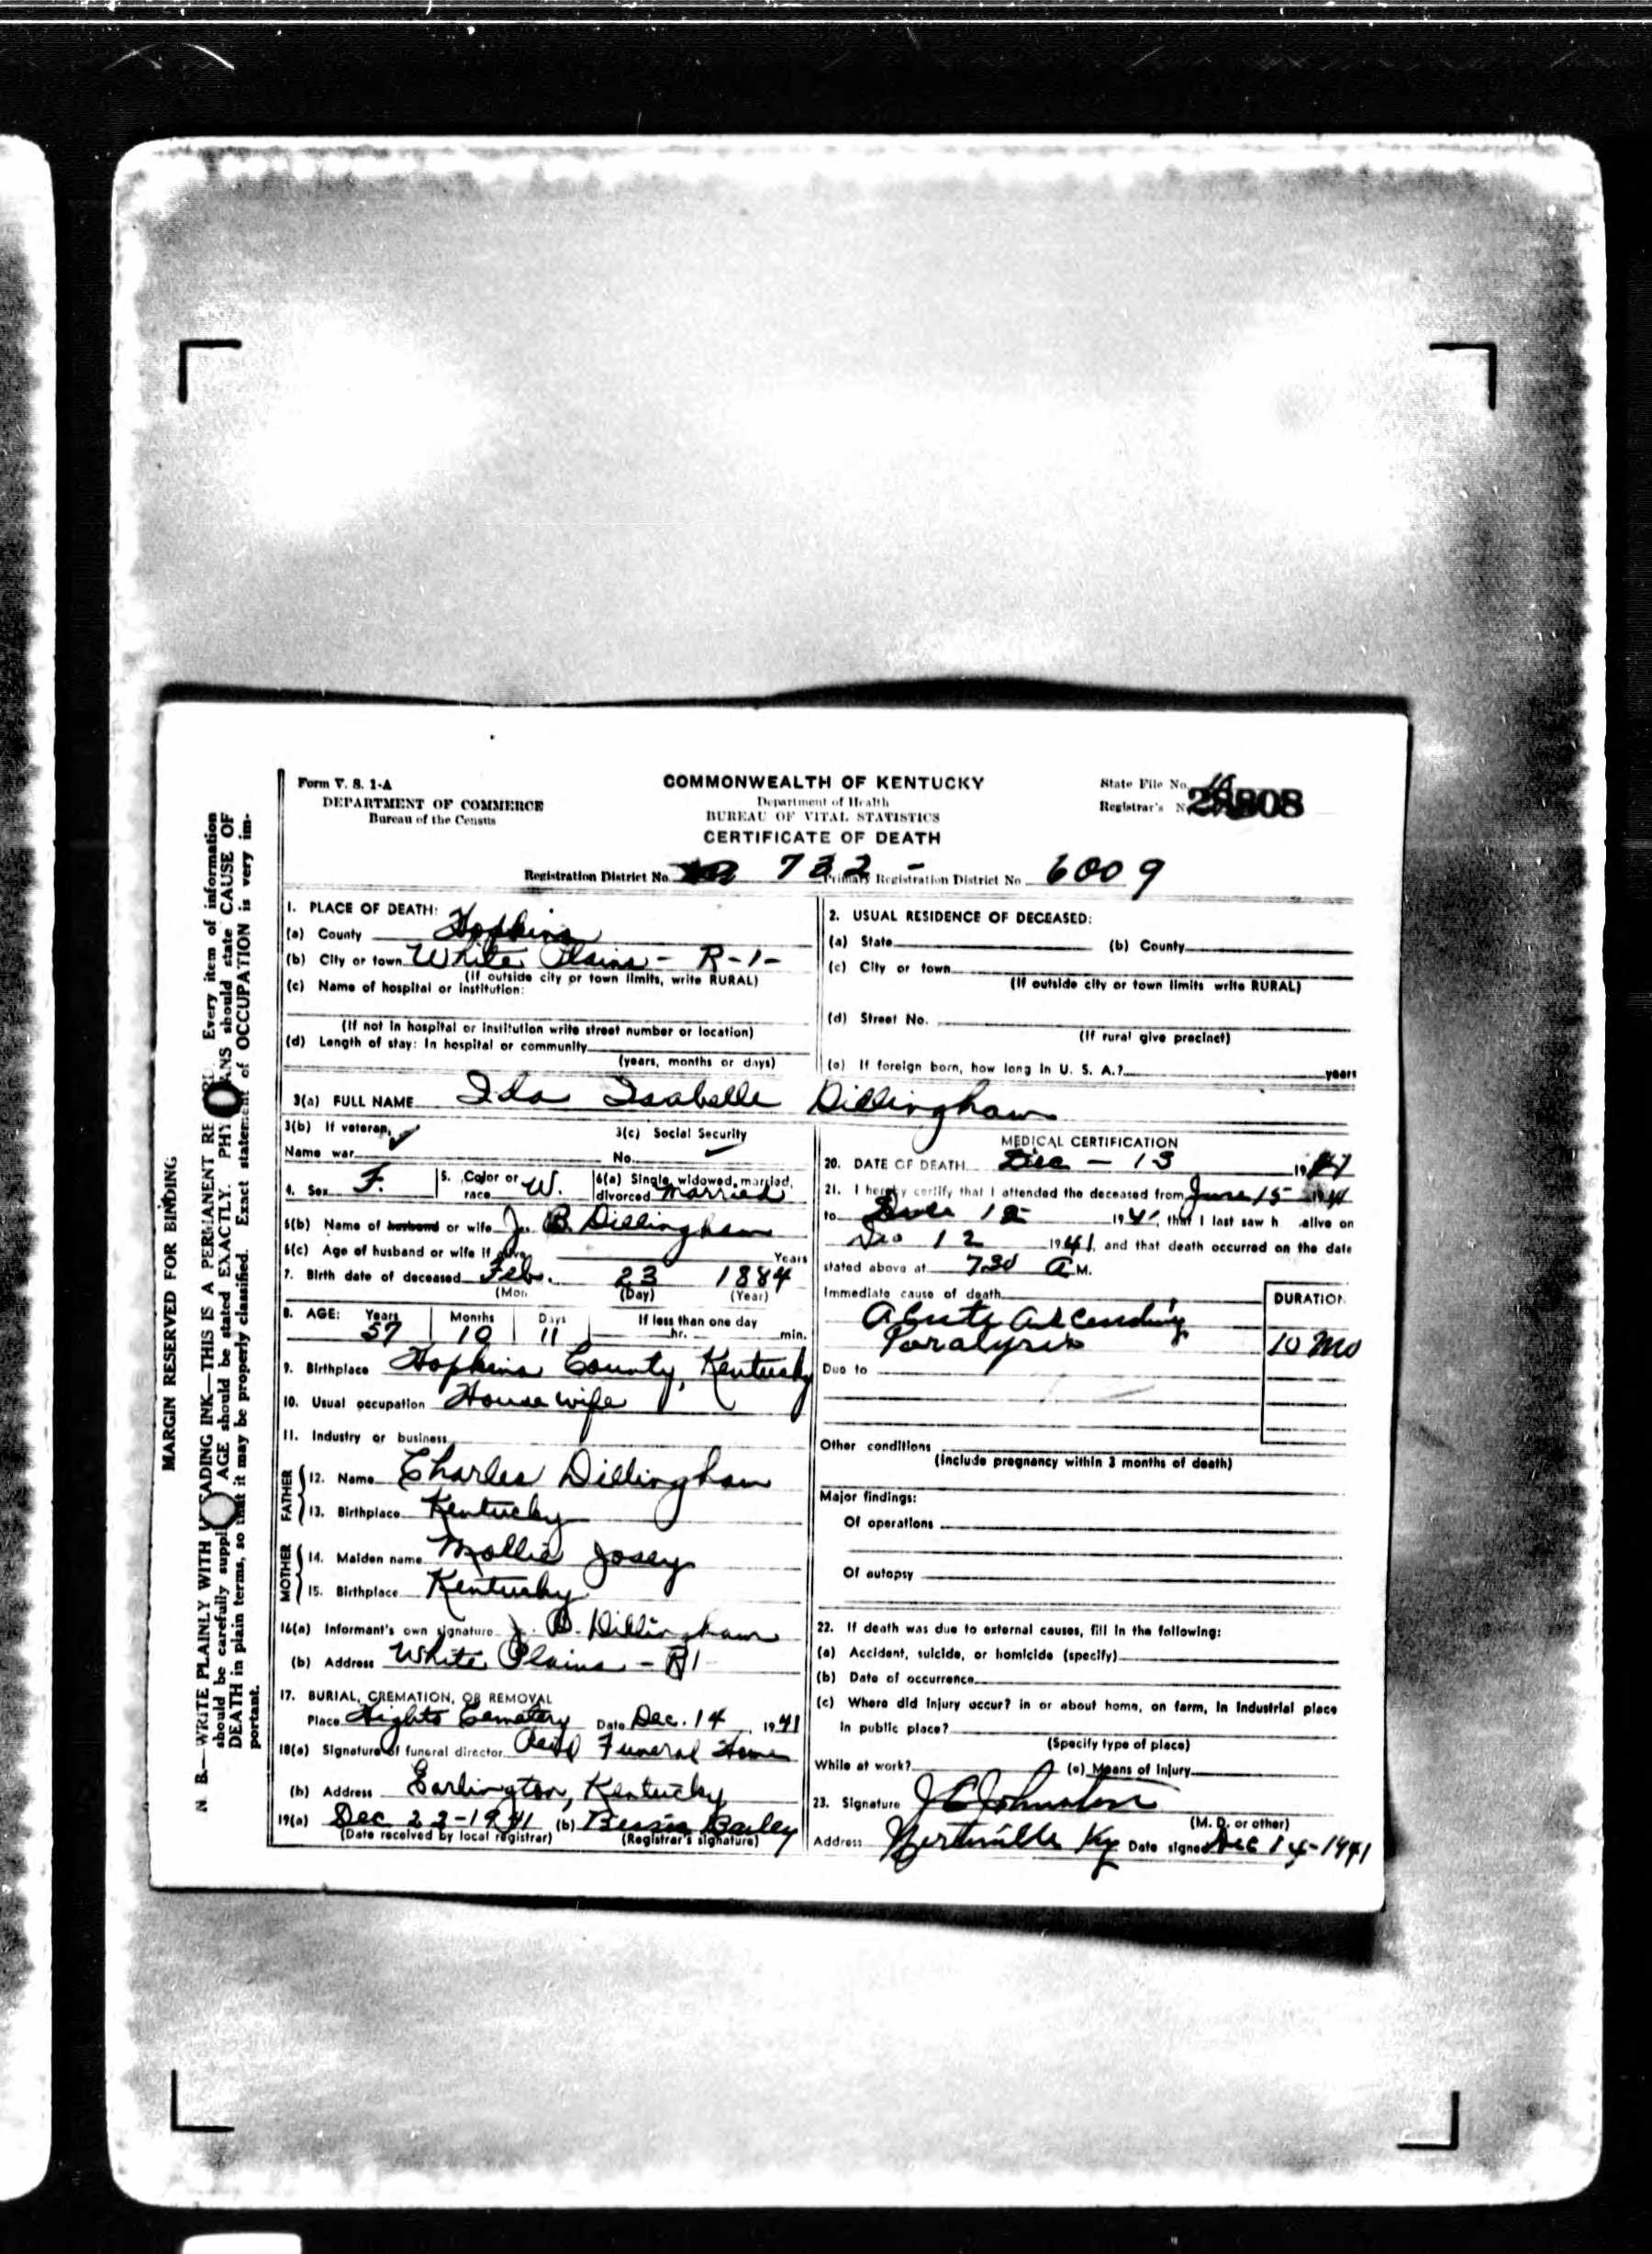 Form V. S. 1-A
DEPARTMENT OF COMMERCE
Bureau of the Census
COMMONWEALTH OF KENTUCKY
Department of Health
BUREAU OF VITAL STATISTICS
CERTIFICATE OF DEATH
State File No.
Registrar's No. 28808
Registration District No. 732- Primary Registration District No. 6009
MARGIN RESERVED FOR BINDING
N. B.—WRITE PLAINLY WITH UNFADING INK—THIS IS A PERMANENT RECORD. Every item of information
should be carefully supplied. AGE should be stated EXACTLY. PHYSICIANS should state CAUSE OF
DEATH in plain terms, so that it may be properly classified. Exact statement of OCCUPATION is very im-
portant.
1. PLACE OF DEATH:
(a) County Hopkins
(b) City or town White Plains - R-1-
(If outside city or town limits, write RURAL)
(c) Name of hospital or institution:
(If not in hospital or institution write street number or location)
(d) Length of stay: In hospital or community
(years, months or days)
2. USUAL RESIDENCE OF DECEASED:
(a) State (b) County
(c) City or town
(If outside city or town limits write RURAL)
(d) Street No.
(If rural give precinct)
(e) If foreign born, how long in U. S. A.? years
3(a) FULL NAME Ida Isabelle Dillingham
3(b) If veteran,
Name war
3(c) Social Security
No.
4. Sex F. 5. Color or race W. 6(a) Single, widowed, married, divorced Married
6(b) Name of husband or wife J. B. Dillingham
6(c) Age of husband or wife if alive Years
7. Birth date of deceased Feb. 23 1884
(Mon (Day) (Year)
8. AGE: Years Months Days If less than one day
57 10 11 hr. min.
9. Birthplace Hopkins County, Kentucky
10. Usual occupation Housewife
11. Industry or business
FATHER
12. Name Charles Dillingham
13. Birthplace Kentucky
MOTHER
14. Maiden name Mollie Josey
15. Birthplace Kentucky
16(a) Informant's own signature J. B. Dillingham
(b) Address White Plains - R1-
17. BURIAL, CREMATION, OR REMOVAL
Place Hights Cemetery Date Dec. 14, 1941
18(a) Signature of funeral director Funeral Home
(b) Address Earlington, Kentucky
19(a) Dec 23-1941 (b) Bessie Bailey
(Date received by local registrar) (Registrar's signature)
MEDICAL CERTIFICATION
20. DATE OF DEATH Dec - 13 1941
21. I hereby certify that I attended the deceased from June 15 1941
to Dec 12 1941, that I last saw h alive on
Dec 12 1941, and that death occurred on the date
stated above at 730 A M.
Immediate cause of death DURATION
Acute ascending
Paralysis 10 Mo
Due to
Other conditions
(Include pregnancy within 3 months of death)
Major findings:
Of operations
Of autopsy
22. If death was due to external causes, fill in the following:
(a) Accident, suicide, or homicide (specify)
(b) Date of occurrence
(c) Where did injury occur? in or about home, on farm, in industrial place
in public place?
(Specify type of place)
While at work? (e) Means of Injury
23. Signature J C Johnston
(M. D. or other)
Address Nortonville Ky Date signed Dec 14-1941